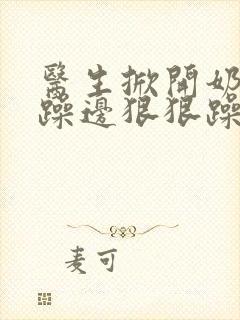 醫生掀開奶
躁邊狠狠躁
麦可